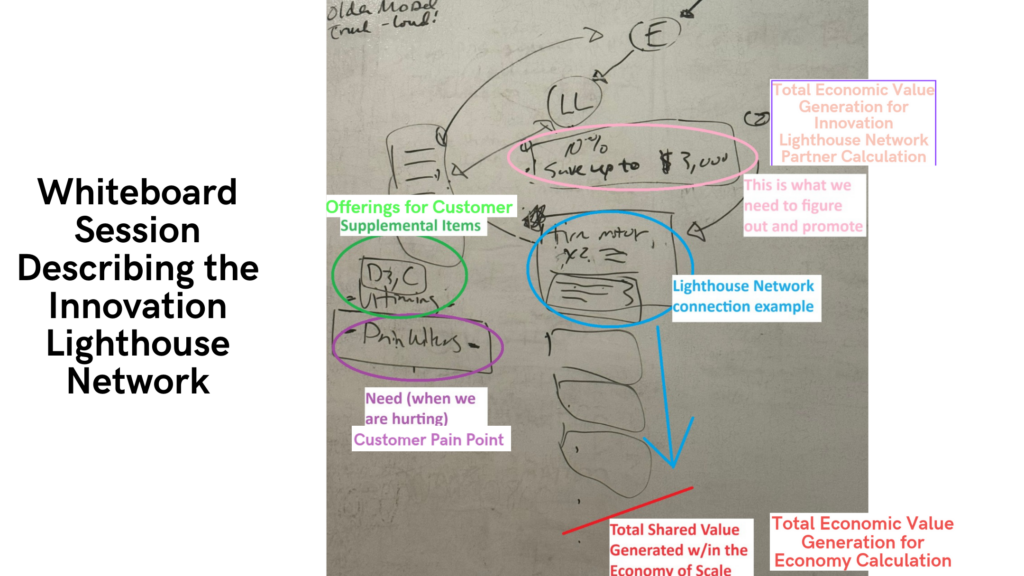 Whiteboard
Session
Describing the
Innovation
Lighthouse
Network
Older Model
E
LL
10%
Save up to $3,000
(2)
Total Economic Value
Generation for
Innovation
Lighthouse Network
Partner Calculation
This is what we
need to figure
out and promote
Offerings for Customer
Supplemental Items
D3, C
Vitamins
- Pain killers -
Need (when we
are hurting)
Customer Pain Point
x2
Lighthouse Network
connection example
Total Shared Value
Generated w/in the
Economy of Scale
Total Economic Value
Generation for
Economy Calculation